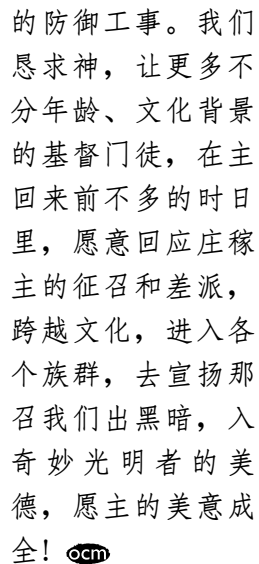 的防御工事。我们
恳求神，让更多不
分年龄、文化背景
的基督门徒，在主
回来前不多的时日
里，愿意回应庄稼
主的征召和差派，
跨越文化，进入各
个族群，去宣扬那
召我们出黑暗，入
奇妙光明者的美
德，愿主的美意成
全！ocm